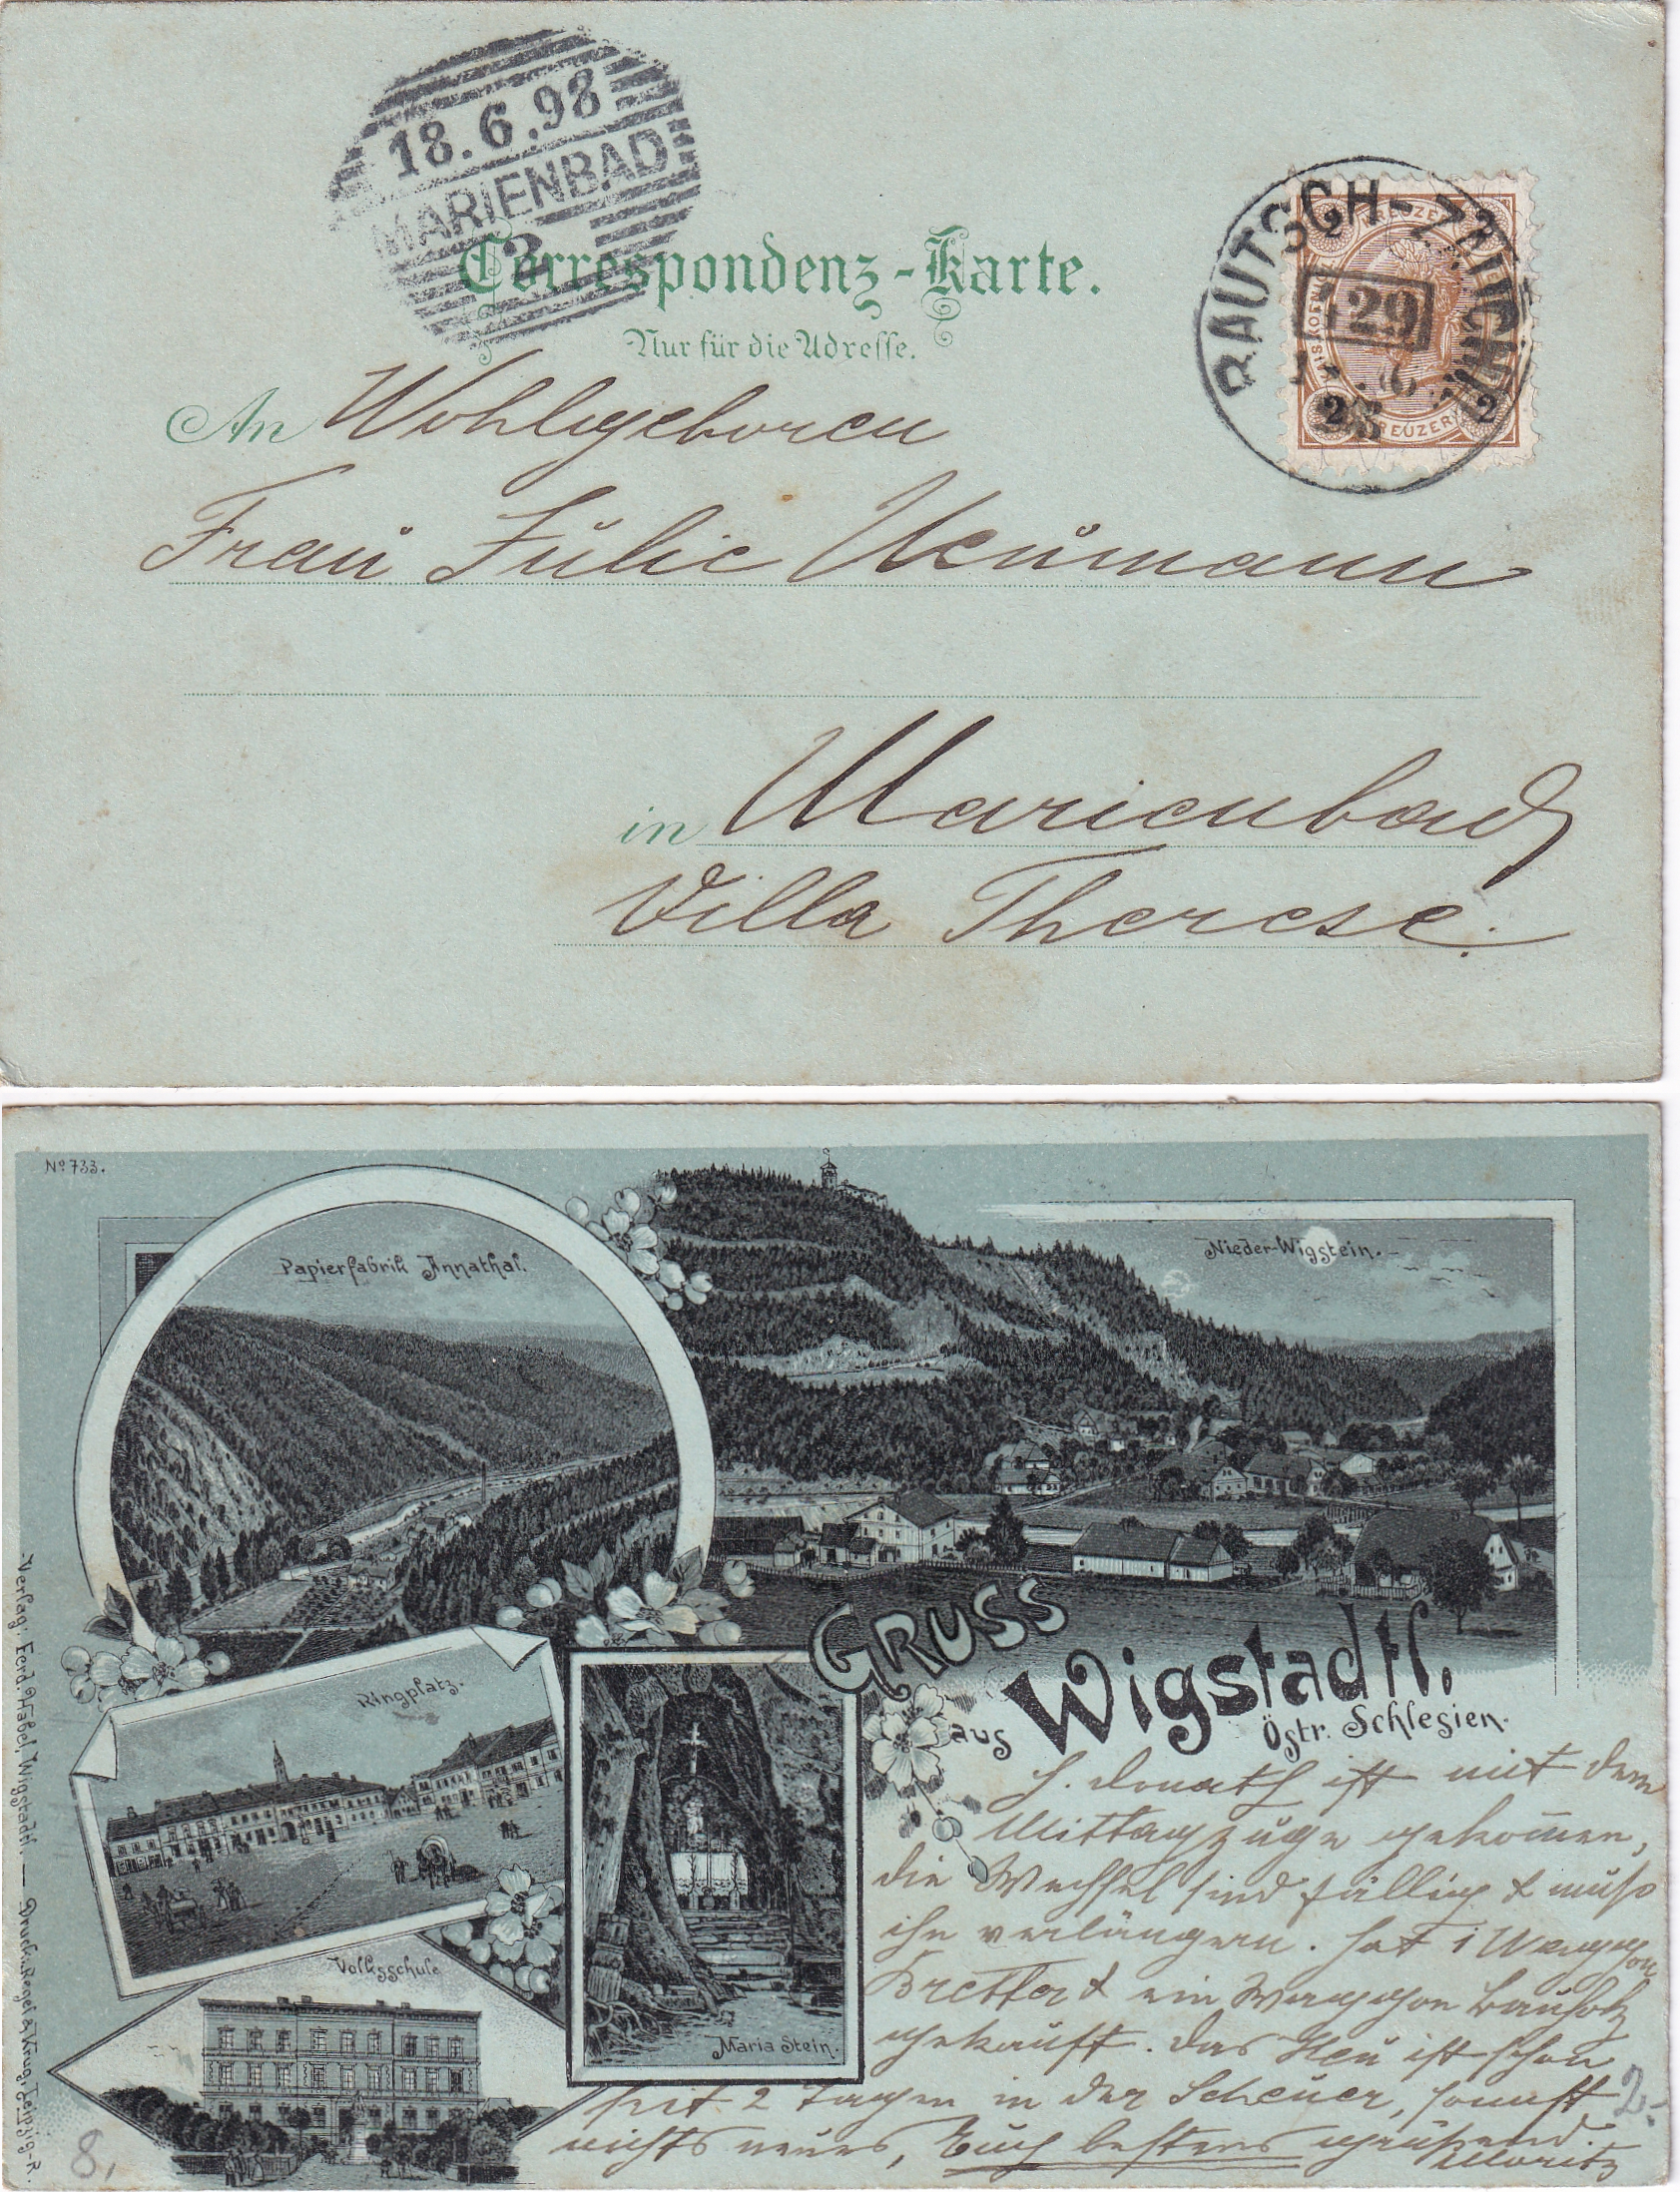 18.6.98
MARIENBAD
2
Correspondenz-Karte.
Nur für die Adresse.
BAUTSCH-ZAUCHTL
129
2 KREUZER 2
2 KREUZER 2
An Wohlgeboren
Frau Julie Neumann
in Marienbad
Villa Therese.
No 733.
Papierfabrik Annathal.
Nieder-Wigstein.
Ringplatz.
Volksschule
Maria Stein.
GRUSS
aus Wigstadtl.
Östr. Schlesien.
Verlag: Ferd. Habel, Wigstadtl. — Druck: Regel & Krug, Leipzig-R.
H. Donath ist mit dem
Mittagzuge gekom̄en,
die Wechsel sind fällig & muß
ihn verlängern. Hat 1 Waggon
Bretter & ein Waggon Bauholz
gekauft. Das Heu ist schon
seit 2 Tagen in der Scheuer, sonst
nichts neues, Euch bestens grüßend.
Moritz
8,
2.-